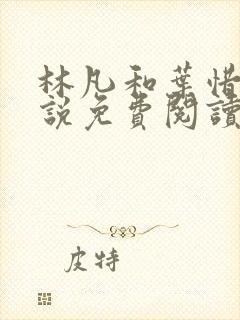 林凡和葉惜
説免費閱讀
皮特